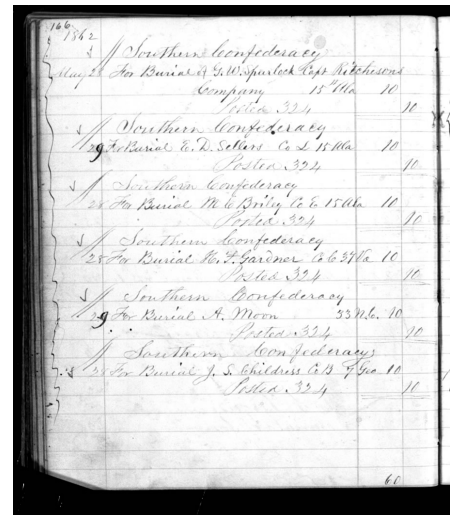 166
1862
Southern Confederacy
May 28 For Burial of G. W. Spurlock Capt Ritchisons
Company 15th Ala 10
Posted 324 10
Southern Confederacy
29 For Burial E. D. Sellers Co L 15 Ala 10
Posted 324 10
Southern Confederacy
28 For Burial M C Briley Co E 15 Ala 10
Posted 324 10
Southern Confederacy
28 For Burial H. F. Gardner Co C 37 Va 10
Posted 324 10
Southern Confederacy
29 For Burial A. Moon 33 N.C. 10
Posted 324 10
Southern Confederacy
28 For Burial J. S. Childress Co B 7 Geo 10
Posted 324 10
60